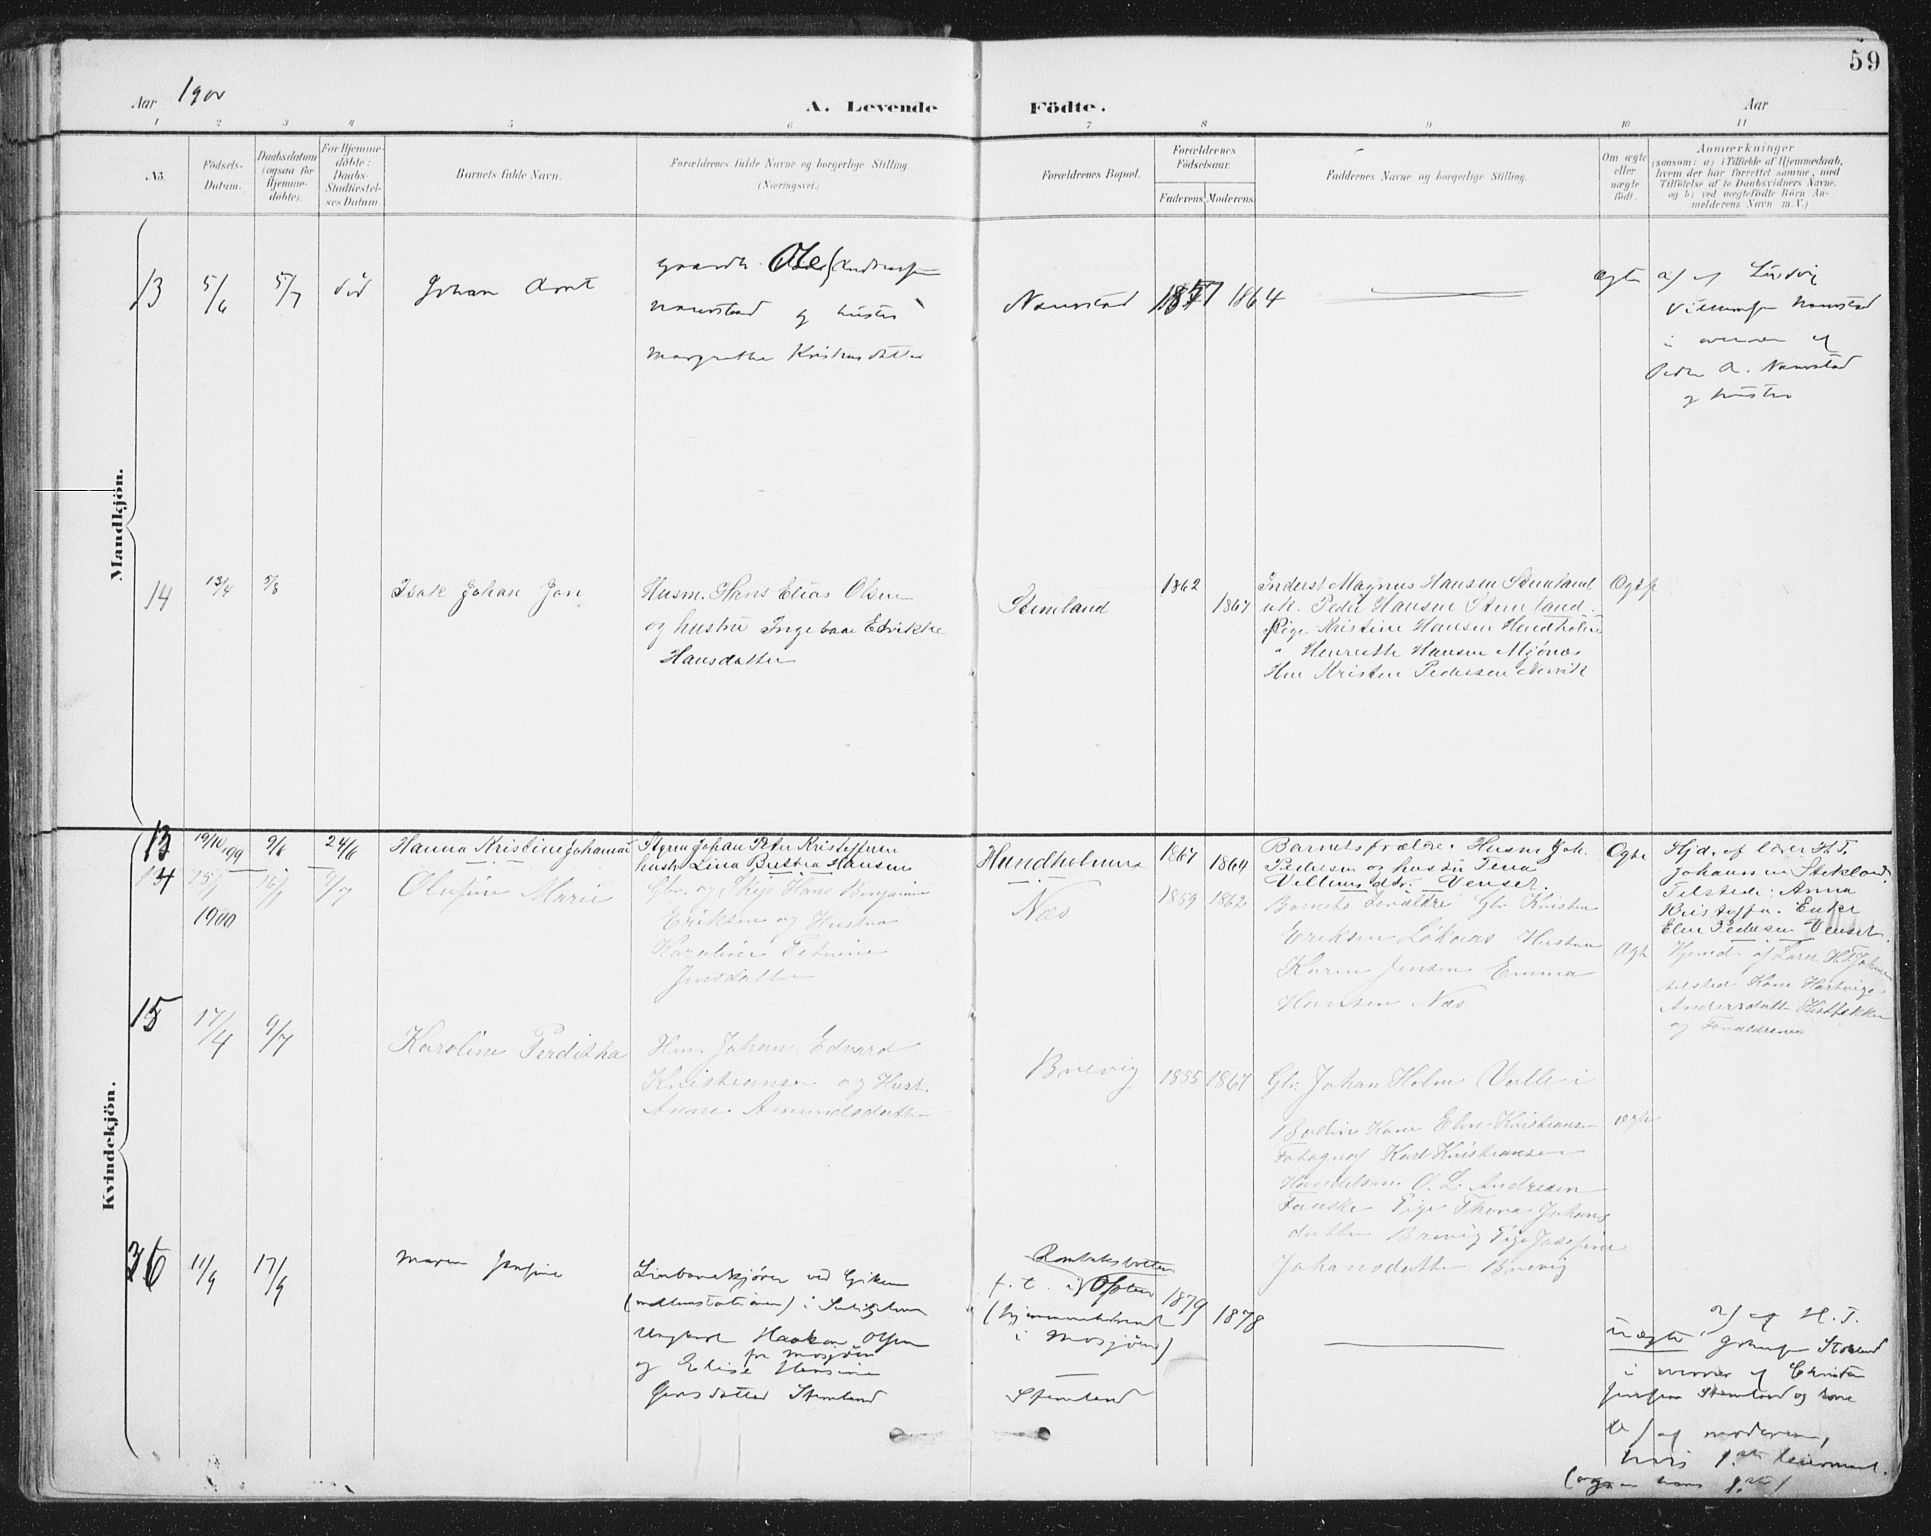 59
Aar 1900
A. Levende
Födte.
Aar
1 2 3 4 5 6 7 8 9 10 11
No.
Födsels-
Datum.
Daabsdatum
(ogsaa for
Hjemme-
döbte).
For Hjemme-
döbte:
Daabs-
Stadfæstel-
ses Datum
Barnets fulde Navn.
Forældrenes fulde Navne og borgerlige Stilling
(Næringsvei.)
Forældrenes Bopæl.
Forældrenes
Födselsaar.
Faderens. Moderens.
Faddernes Navne og borgerlige Stilling.
Om ægte
eller
uægte
födt.
Anmærkninger
(saasom: a) i Tilfælde af Hjemmedaab,
hvem der har forrettet samme, med
Tilföielse af to Daabsvidners Navne.
og b) ved uægtefödte Börn An-
melderens Navn m.V.)
Mandkjön.
13 5/6 5/7 död Johan Arnt
Ole
Naurstad og hustru
Margrethe Kristensdatter
Naurstad 1857 1864
ægte
a) af Ludvig
Naurstad
i overvær af
Peder A. Naurstad
og hustru
14 13/4 5/8 Isak Johan Jon
Husm. Hans Elias Olsen
og hustru Ingebaar Edvikke
Hansdatter
Stemland 1862 1867
Inderst Magnus Hansen Stemland
uk. Peder Hansen Stemland.
Pige Kristine Hansen Hundholm
" Henrette Hansen Mjönes
Hm Kristen Pedersen
Kvindekjön.
13 19/10 99 9/6 24/6 Hanna Kristine Johanna
Styrm Johan Peter Kristoffersen
hustr Lina Hansen
Hundholmen 1867 1864
Barnets forældre. Husm Joh.
Pedersen og hustru Tena
Villumsdtr. Venset.
Ogte
Hjd. af lærer H.T.
Johannsen Stokland.
Tilstede: Anna
Kristoffa. Enke
Elen Pedersen Venset.
14 15/1 1900 16/1 9/7 Olufine Marie
Gbr. og Skip. Hans Benjamin
Eriksen og Hustru
Karoline Petrine
Jensdatter
Næs 1859 1862
Barnets Forældre Gbr Kristen
Eriksen Løknes Hustru
Karen Jensen Emma
Hansen Næs
Ogte
Hjemd. af Lærer H.T. Johan
tilsted Kone Hartvige
Andersdatter
og Forældrene
15 17/4 9/7 Karoline Perditha
Hm Johan Edvard
Kristiansen og Hust.
Anne Amundsdatter
Brevig 1855 1867
Gbr Johan Holm Valle i
Bodin Kone Eline Kristiansen
Fotograf Karl Kristiansen
Handelsm. O. L. Andresen
Fauske Pige Thora Johans
datter Brevig Pige Josefine
Johansdatter Brevig
ægte
16 11/9 17/9 Maren Josfine
Linbanekjører ved Giken
(mellemstationen) i Sulitjelma
Ungkarl Haakon Olsen
fra Mosjøen
og Elise Hansine
Jensdatter Stemland
f. t. i
(hjemmehørende
i Mosjøen)
—
Stemland
1879 1878
uægte
a) af H. T.
Johansen Stokland
i overvær af Christen
Jensen Stemland og kone
b) af moderen,
hvis 1.ste leiermaal.
(ogsaa hans 1.ste)